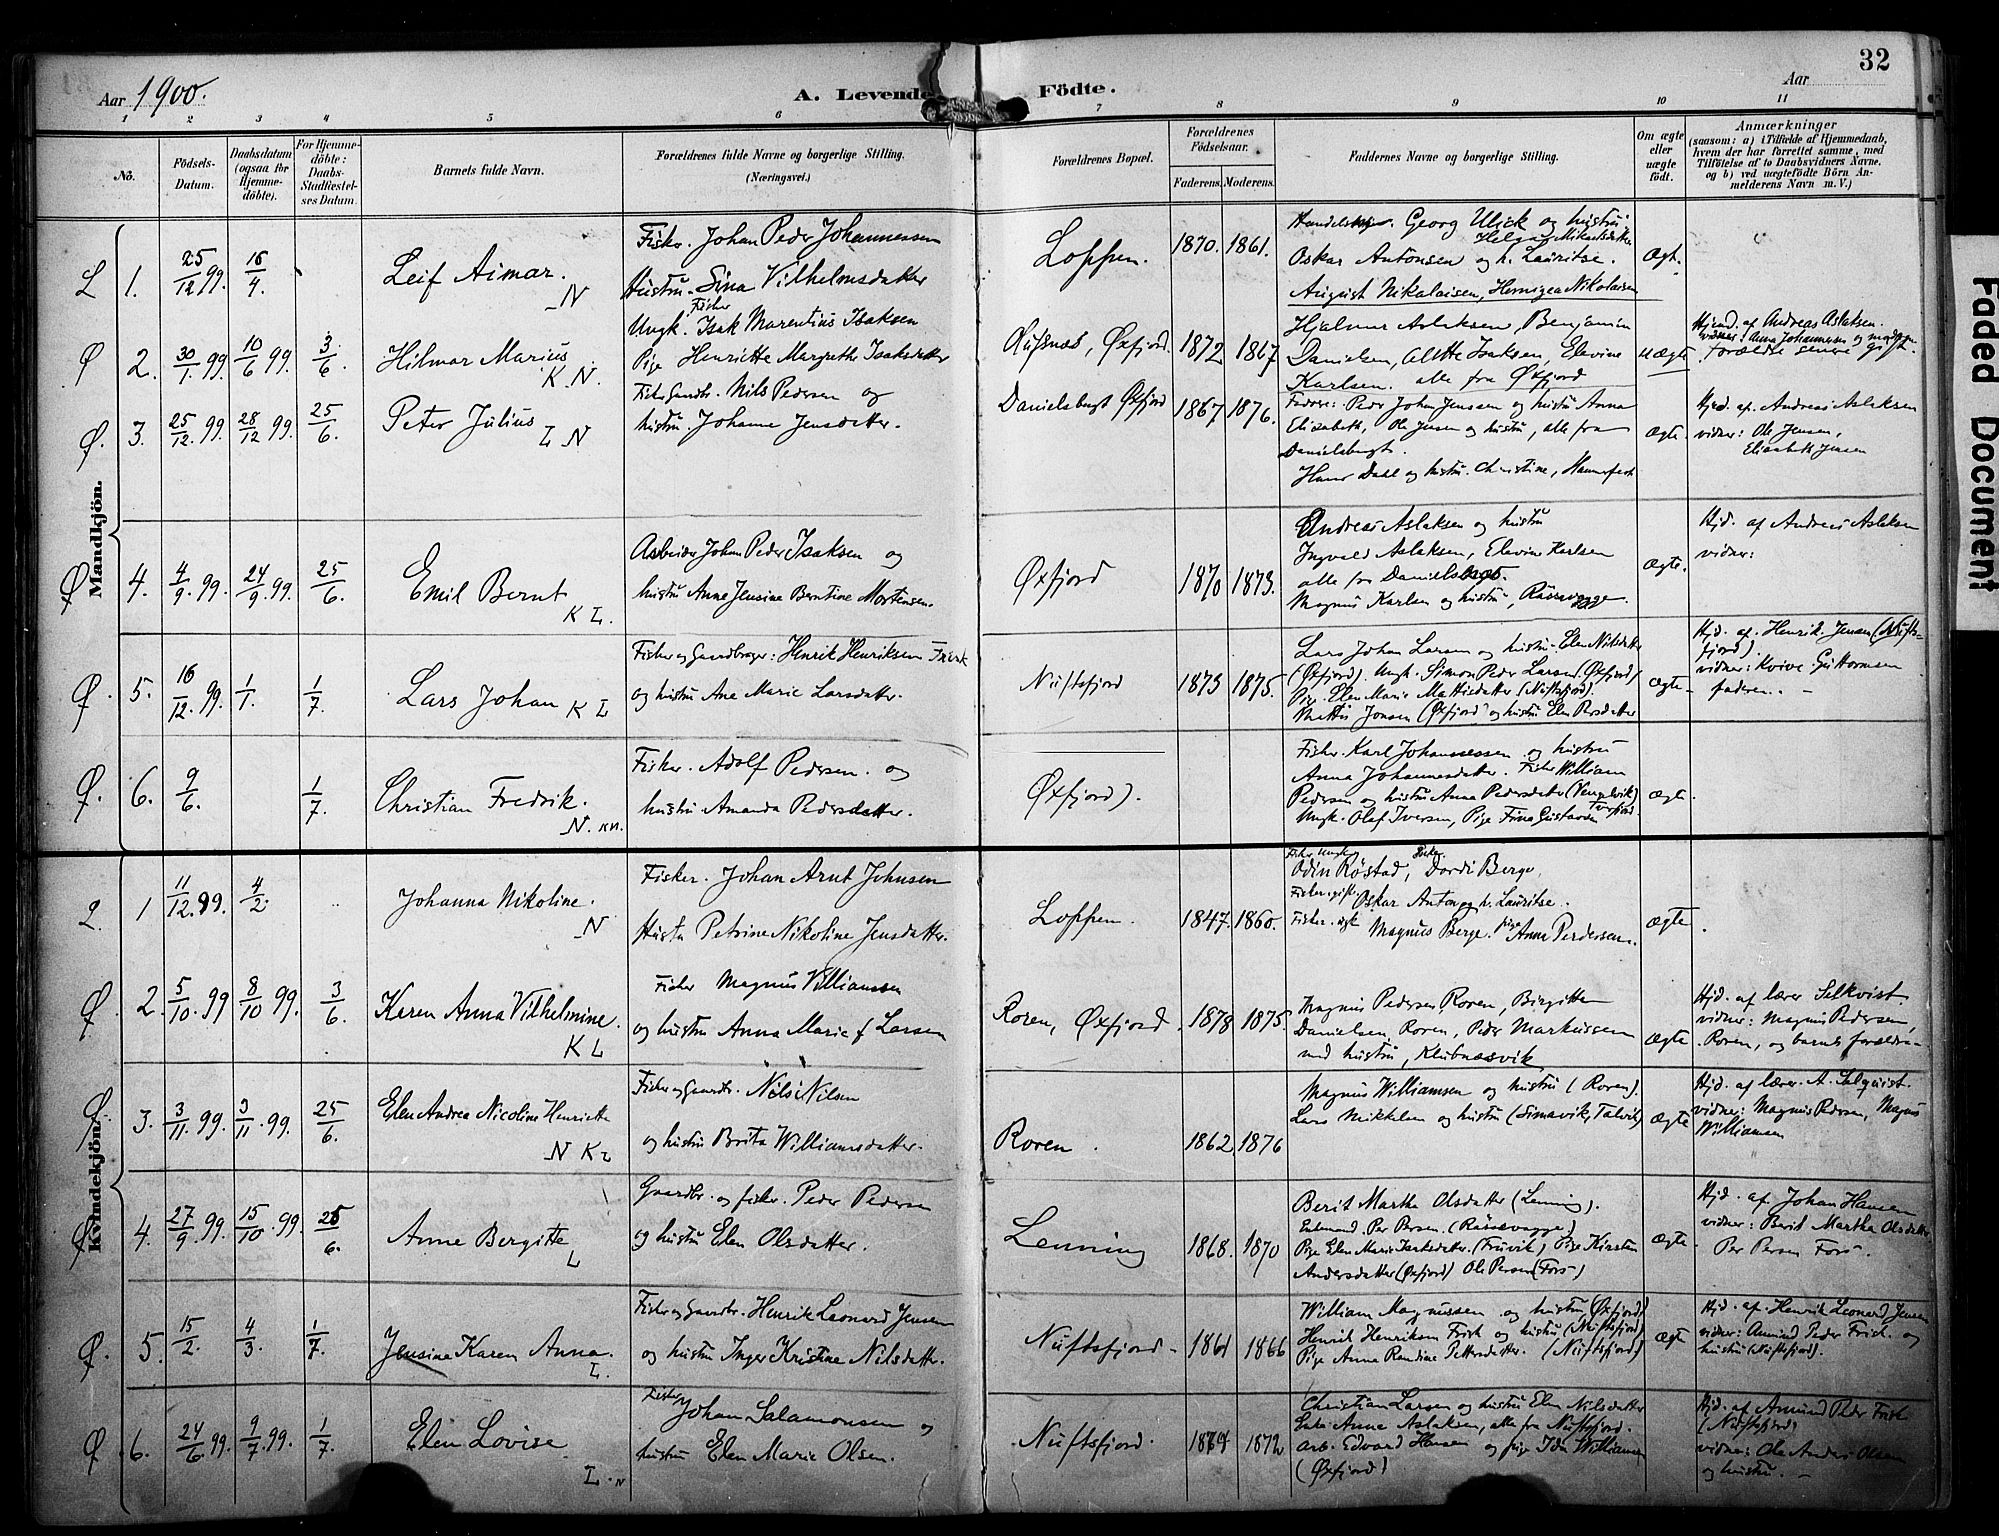 32
Aar 1900.
A. Levende Födte.
Aar
1 2 3 4 5 6 7 8 9 10 11
No.
Födsels-Datum.
Daabsdatum (ogsaa for Hjemme-döbte).
For Hjemme-döbte: Daabs-Stadfæstel-ses Datum.
Barnets fulde Navn.
Forældrenes fulde Navne og borgerlige Stilling. (Næringsvei.)
Forældrenes Bopæl.
Forældrenes Födselsaar.
Faderens. Moderens.
Faddernes Navne og borgerlige Stilling.
Om ægte eller uægte födt.
Anmærkninger
(saasom: a) i Tilfælde af Hjemmedaab, hvem der har forrettet samme, med Tilföielse af to Daabsvidners Navne, og b) ved uægtefödte Börn An-melderens Navn m. V.)
Mandkjön.
L 1. 25/12 99. 16/4. Leif Aimar. N
Fisker. Johan Peder Johannessen
Hustru. Sina Vilhelmsdatter
Loppen. 1870. 1861.
Georg Ulick og hustru
Oskar Antonsen og h. Lauritse.
August Nikolaisen, Nikolaisen
Ægt.
Ø 2. 30/1 99. 10/6 99. 3/6. Hilmar Marius. K. N.
Fisker
Ungk. Isak Marentius Isaksen
Pige Henriette Margrethe Isaksdatter
Øxfjord. 1872 1867
Hjalmar Aslaksen, Benjamin
Danielsen, Isaksen, Elevine
Karlsen. alle fra Øxfjord
uægte
Hjemd. af Andreas Aslaksen.
Ø. 3. 25/12 99. 28/12 99. 25/6. Peter Julius L N
Fisker Gaardbr. Nils Pedersen og
hustru. Johanne Jensdatter.
Danielsbugt Øxfjord 1867 1876.
Faddere: Peder Johan Jenssen og hustru Anna
Elisabeth, Ole Jensen og hustru, alle fra
Danielsbugt.
Hans Dahl og hustru Christine, Hammerfest
Ægte.
Hjd. af. Andreas Aslaksen
vidner: Ole Jensen,
Elisabeth Jensen
Ø 4. 4/9 99. 24/9 99. 25/6. Emil Bernt K L.
Arbeider Johan Peder Isaksen og
hustru Anne Jensine Berntine Mortensen.
Øxfjord 1870 1873.
Andreas Aslaksen og hustru
Ingvald Aslaksen, Elevine Karlsen
alle fra Danielsbugt.
Magnus Karlsen og hustru, Rüssevagge.
Ægte.
Hjd. af Andreas Aslaksen
vidner:
Ø. 5. 16/12 99. 1/1. 1/7 Lars Johan K L
Fisker og Gaardbruger: Henrik Henriksen
og hustru Ane Marie Larsdatter.
Nuftsfjord 1873 1875.
Lars Johan Larsen og hustru Elen Nilsdatter
(Øxfjord). Ungk. Simon Peder Larsen (Øxfjord)
Pige Elen Marie Mattisdatter (Nuftsfjord).
Mattis Jonsen (Øxfjord) og hustru Elen
ægte
Hjd. af. Henrik Jensen (Nufts-
fjord)
vidner: Kvive Guttormsen
faderen.
Ø. 6. 9/6. 1/7 Christian Fredrik. N. KN.
Fisker. Adolf Pedersen. og
hustru Amanda Pedersdatter.
Øxfjord).
Fisker. Karl Johannessen og hustru
Anna Johannesdatter. Fisker William
Pedersen og hustru Anna Pedersdatter
Ungk. Olaf Iversen, Pige Fina Gustavsen
Ægte.
Kvindekjön.
1 11/12. 99. 4/2 Johanna Nikoline. N
Fisker. Johan Arnt Johnsen
Hustru Petrine Nikoline Jensdatter.
Loppen. 1847. 1860.
Odin Röstad, Dordi Berge.
Oskar Anton og h. Lauritse.
Magnus Berge. Pige Anna Perdersen.
Ægte.
Ø. 2. 5/10. 99 8/10 99. 3/6. Karen Anna Vilhelmine. K L
Fisker Magnus Williamsen
og hustru Anna Marie f. Larsen
Roren, Øxfjord. 1878 1875.
Magnus Pedersen Roren, Birgitte
Danielsen, Roren, Peder Markussen
med hustru, Klubnæsvik
Ægte
Hjd. af lærer Selkvist
vidner: Magnus Pedersen,
Roren, og barnets forældre
Ø 3. 3/11. 99. 3/11. 99. 25/6. Elen Andrea Nicoline Henriette N K L
Fisker og Gaardbr. Nils Nilsen
og hustru Brita Williamsdatter.
Roren. 1862 1876
Magnus Williamsen og hustru (Roren).
Lars Mikkelsen og hustru (Simavik, Talvik)
Ægte
Hjd. af lærer. A. Selquist.
vidner: Magnus Pedersen, Magnus
Williamsen
Ø 4. 27/9. 99. 15/10. 99. 25/6. Anne Bergitte L
Gaardbr. og fisker. Peder Pedersen
og hustru Elen Olsdatter.
Lenning 1868. 1870
Berit Martha Olsdatter (Lenning).
Edmund Per Persen. (Rüssevagge)
Pige Elen Marie Isaksdatter. Pige Kirsten
Andersdatter (Øxfjord) Ole Persen (Fors)
ægte
Hjd. af. Johan Hansen
vidner: Berit Martha Olsdatter
Per Persen Fors.
Ø. 5. 15/2. 4/3. 1/7. Jensine Karen Anna. L.
Fisker og Gaardbr. Henrik Leonard Jensen
og hustru Inger Kristine Nilsdatter.
Nuftsfjord 1861 1866
William Magnussen og hustru (Øxfjord)
Henrik Henriksen Frisk og hustru (Nuftsfjord)
Pige Anna Randine Pettersdatter. (Nuftsfjord)
Ægte
Hjd. af. Henrik Leonard Jensen
vidner: Amund Peder Frisk. og
hustru (Nuftsfjord).
Ø. 6. 24/6. 99. 9/7. 99. 1/7 Elen Lovise L. N
Fisker Johan Salamonsen og
hustru Elen Marie Olsen.
Nuftsfjord. 1872
Christian Larsen og hustru Elen Nilsdatter
Enke Anne Aslaksen, alle fra Nuftsfjord.
Arb. Edvard Hansen og pige Ida
(Øxfjord)
Hjd. af Amund Peder Frisk
(Nuftsfjord)
vidner: Ole Anders Olsen
og hustru.
Faded Document